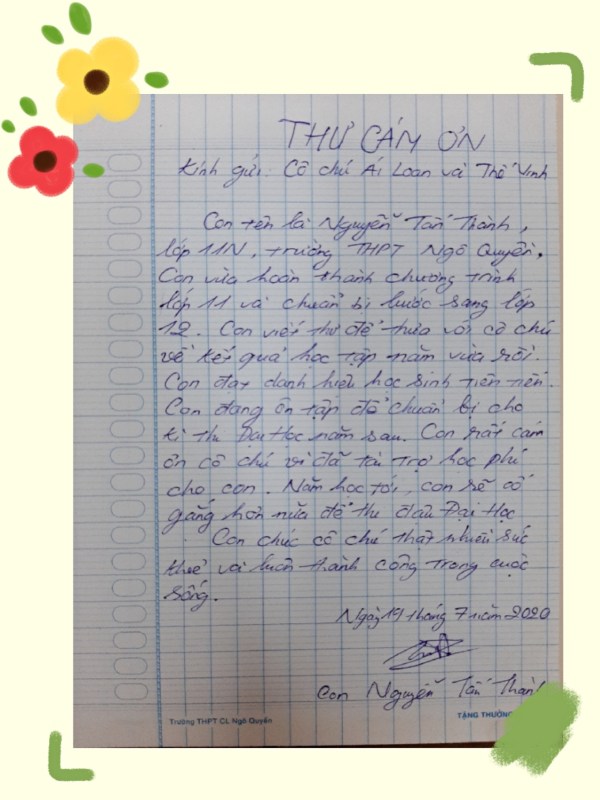 THƯ CÁM ƠN
Kính gửi: Cô chú Ái Loan và Thế Vinh
Con tên là Nguyễn Tấn Thành,
lớp 11N, trường THPT Ngô Quyền,
Con vừa hoàn thành chương trình
lớp 11 và chuẩn bị bước sang lớp
12. Con viết thư để thưa với cô chú
về kết quả học tập năm vừa rồi.
Con đạt danh hiệu học sinh tiên tiến.
Con đang ôn tập để chuẩn bị cho
kì thi Đại Học năm sau. Con rất cám
ơn cô chú vì đã tài trợ học phí
cho con. Năm học tới, con sẽ cố
gắng hơn nữa để thi đậu Đại Học
Con chúc cô chú thật nhiều sức
khoẻ và luôn thành công trong cuộc
sống.
Ngày 19 tháng 7 năm 2020
Con Nguyễn Tấn Thành
Trường THPT CL Ngô Quyền
TẶNG THƯỞNG